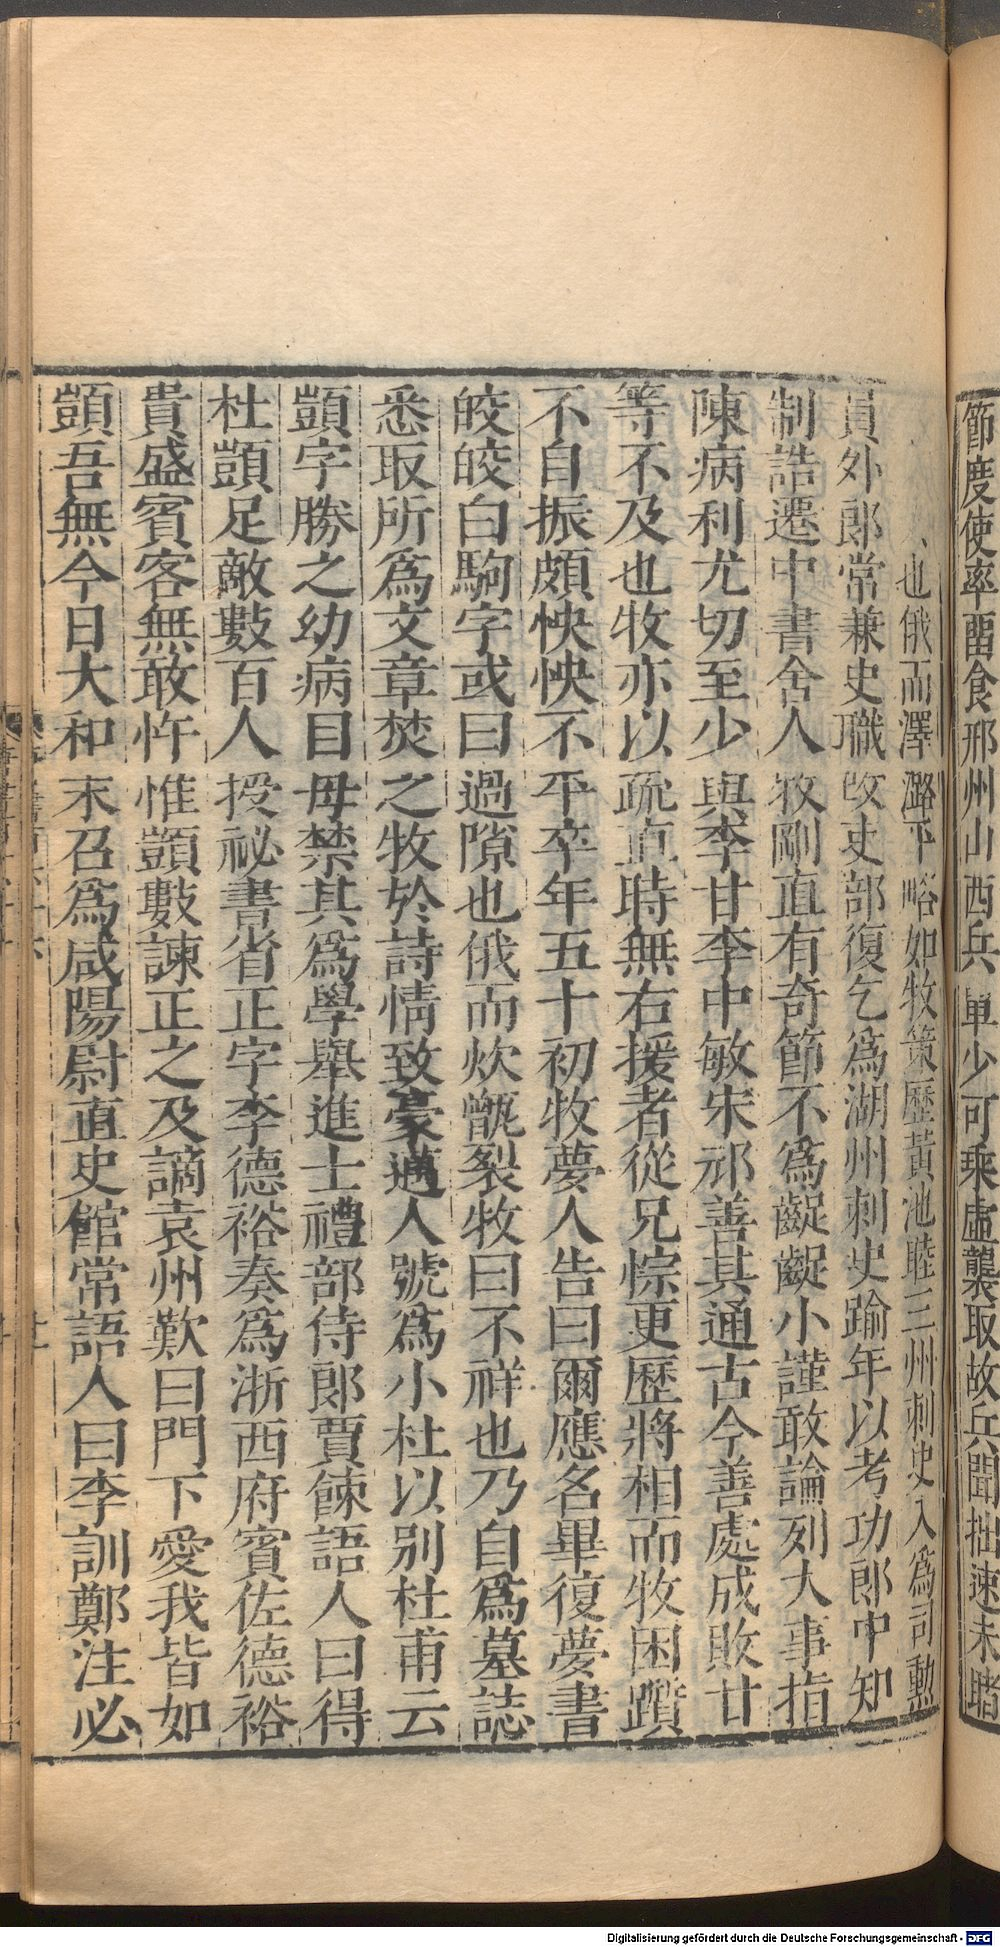 節度使率畱食邢州山西兵單少可乘虛襲取故兵聞拙速未睹
也俄而澤潞平略如牧策歷黃池睦三州刺史入爲司勲
員外郎常兼史職改吏部復乞爲湖州刺史踰年以考功郎中知
制誥遷中書舍人牧剛直有奇節不爲齪齪小謹敢論列大事指
陳病利尤切至少與李甘李中敏宋祁善其通古今善處成敗甘
等不及也牧亦以疏直時無右援者從兄悰更歷將相而牧困躓
不自振頗怏怏不平卒年五十初牧夢人告曰爾應名畢復夢書
皎皎白駒字或曰過隙也俄而炊甑裂牧曰不祥也乃自爲墓誌
悉取所爲文章焚之牧於詩情致豪邁人號爲小杜以别杜甫云
顗字勝之幼病目母禁其爲學舉進士禮部侍郎賈餗語人曰得
杜顗足敵數百人授祕書省正字李德裕奏爲浙西府賓佐德裕
貴盛賓客無敢忤惟顗數諫正之及謫袁州歎曰門下愛我皆如
顗吾無今日大和末召爲咸陽尉直史館常語人曰李訓鄭注必
Digitalisierung gefördert durch die Deutsche Forschungsgemeinschaft - DFG